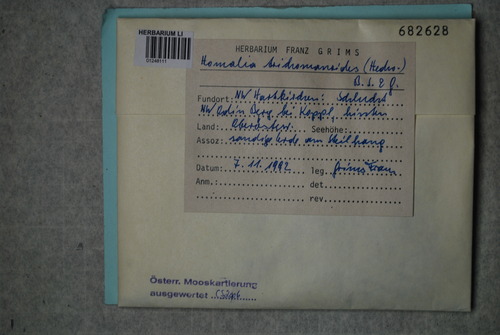 HERBARIUM LI
682628
HERBARIUM FRANZ GRIMS
Homalia trichomanoides (Hedw.)
B. S. & G.
Fundort: NW Hartkirchen:
NW bei Keppl,
Land: Oberösterr. Seehöhe:
Assoz: sandige Erde am Steilhang
Datum: 7. 11. 1982 leg. Grims Franz
Anm.: det.
rev.
Österr. Mooskartierung
ausgewertet